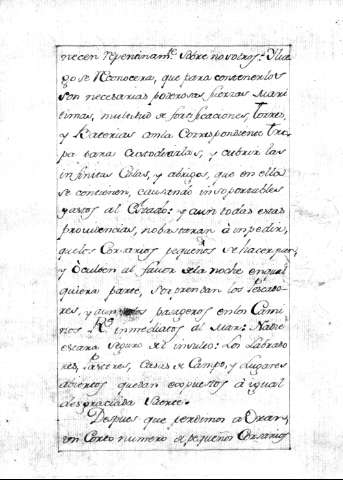 necen repentinam.te sobre nosotros. Lue
go se reconocerá, que para contenerlos
son necesarias poderosas fuerzas mari
timas, multitud de fortificaciones, torres,
y Baterias con la Correspondiente tro
pa para Custodiarlas, y cubrir las
infinitas Calas, y abrigos, que en ella
se contienen, causando insoportables
gastos al Estado: y aun todas estas
providencias, no bastarán á impedir,
que los Corsarios pequeños se hacerquen
y Oculten al favor de la noche en qual
quiera parte, sorprendan los Pescado
res, y aun pasageros en los Cami
nos R.s inmediatos al Mar: Nadie
estará seguro del insulto: Los Labrado
res, Pastores, Casas de Campo, y Lugares
abiertos quedan expuestos á igual
desgraciada Suerte.
Despues que perdimos a Oran,
un Corto numero de pequeños Corsarios